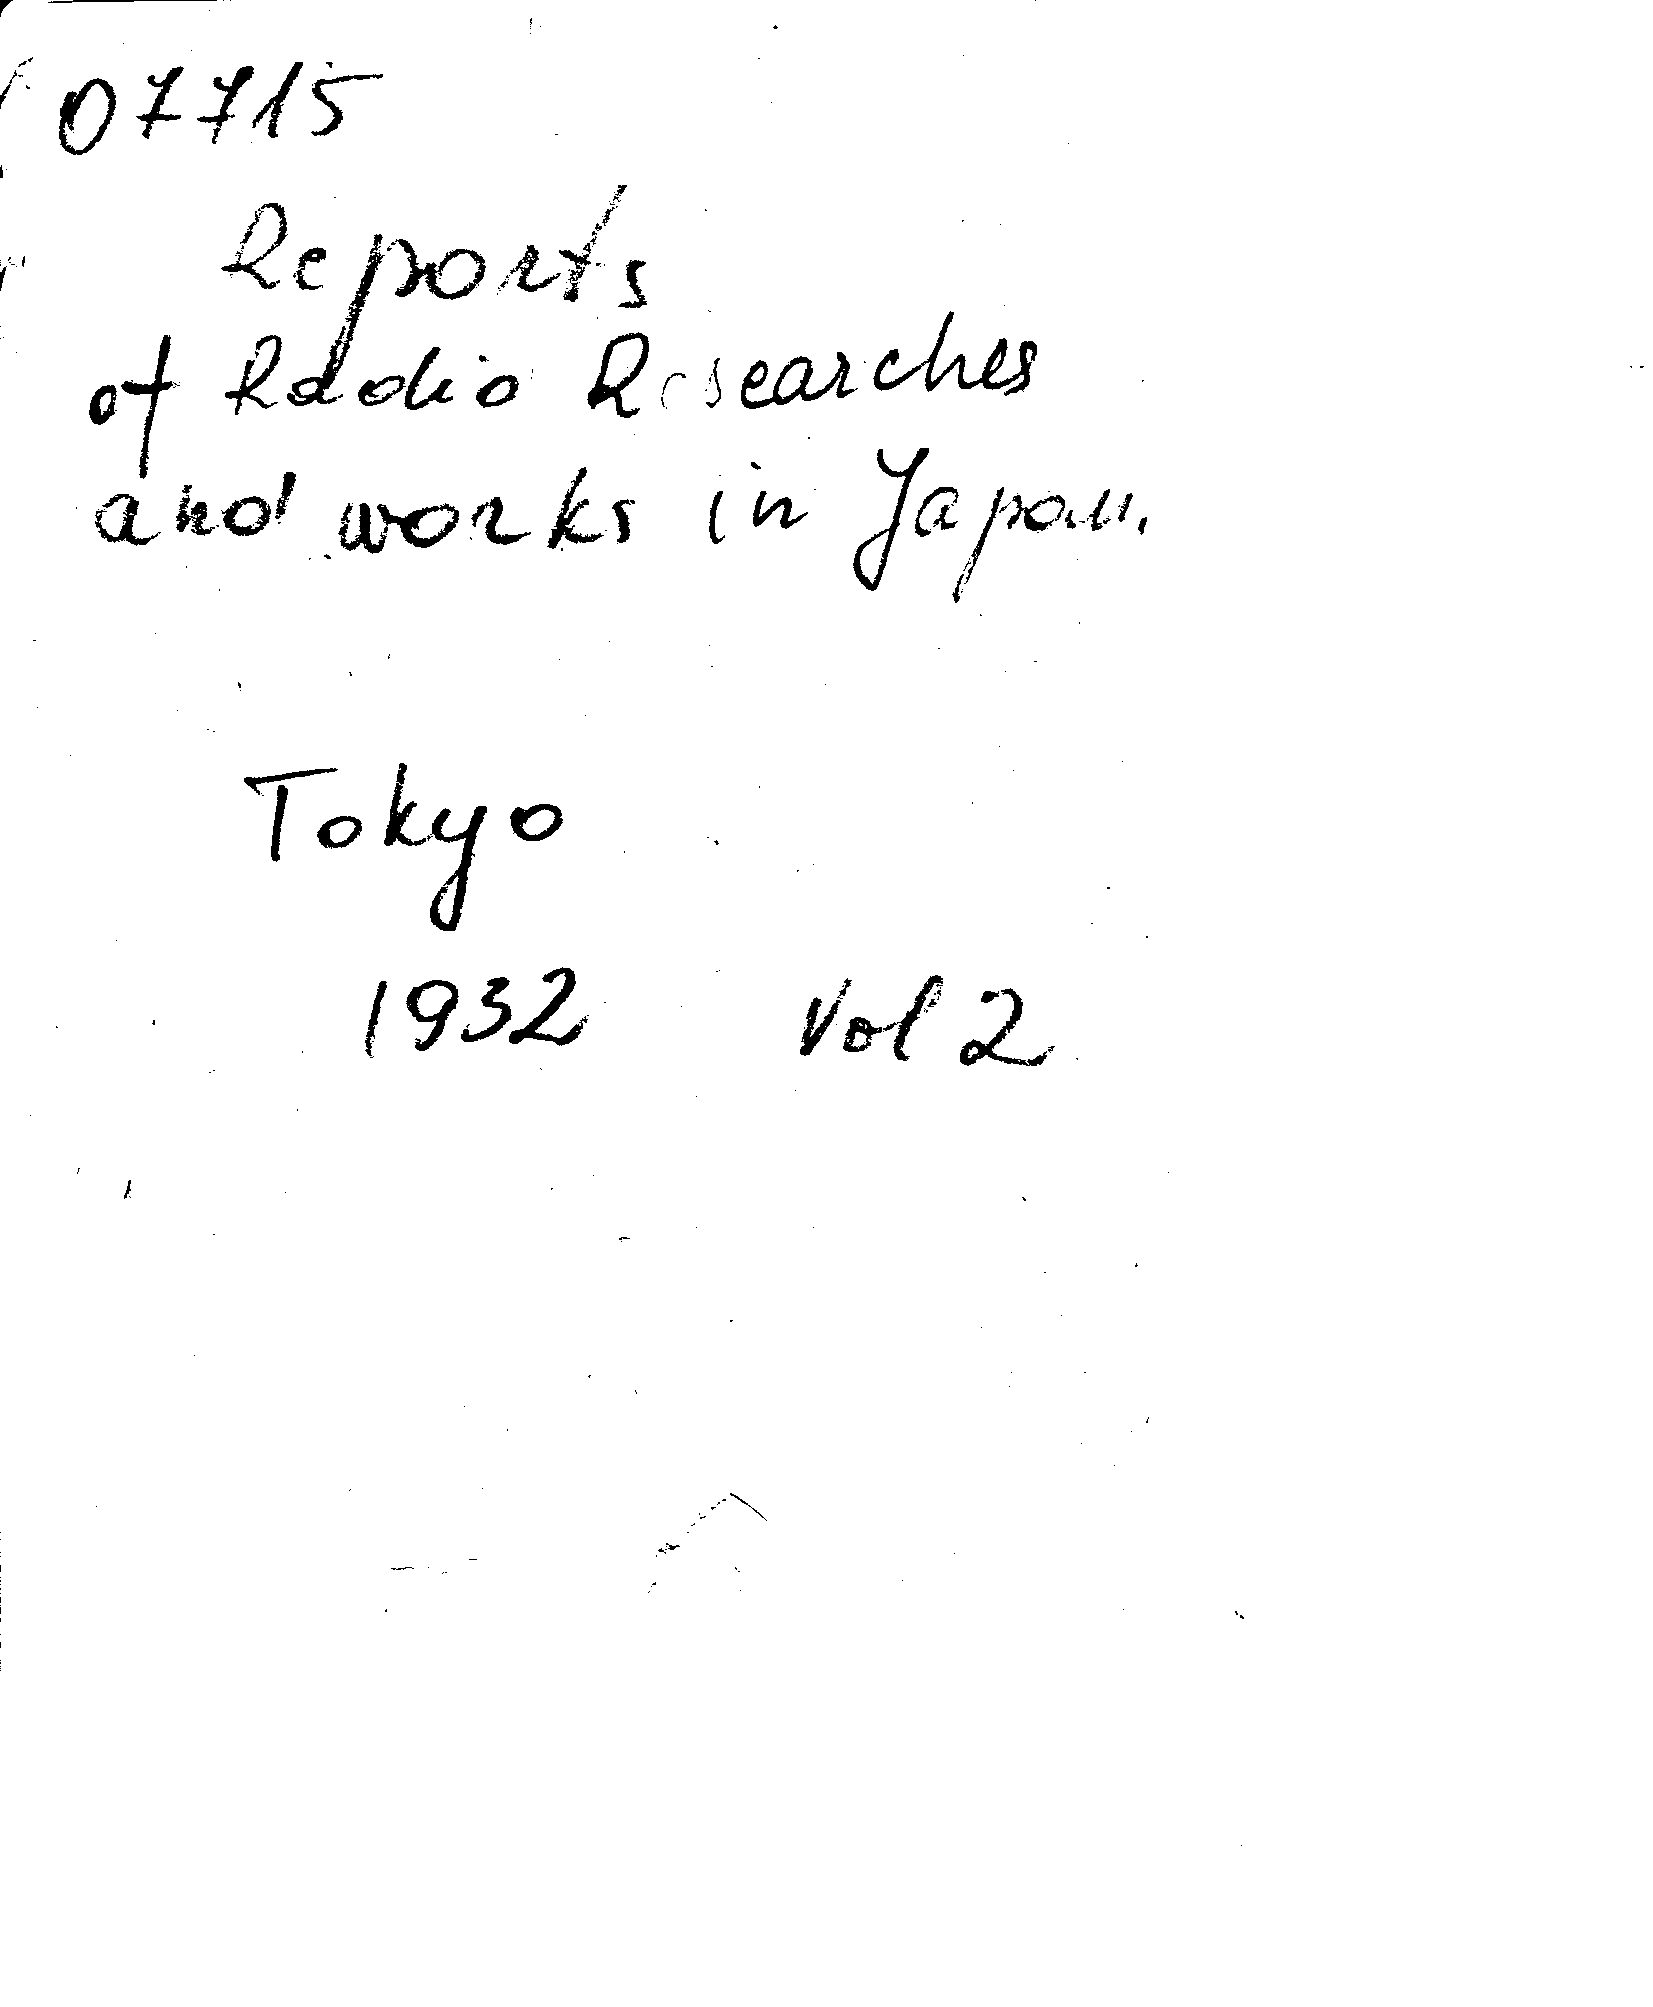 07715
Reports
of Radio Researches
and works in Japan.
Tokyo
1932 Vol 2